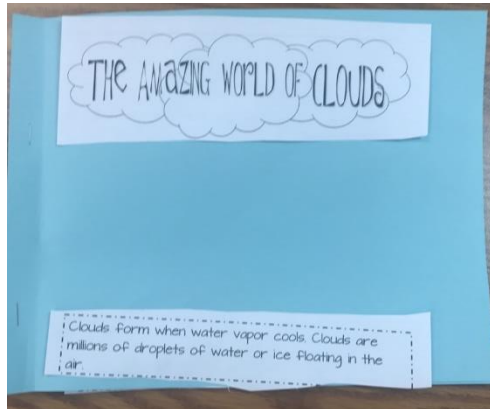 THE AMAZING WORLD OF CLOUDS
Clouds form when water vapor cools. Clouds are
millions of droplets of water or ice floating in the
air.